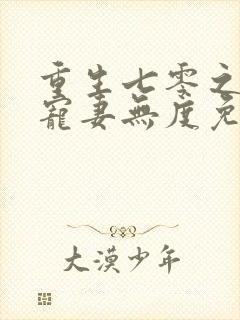 重生七零之
寵妻無度免
大漠少年